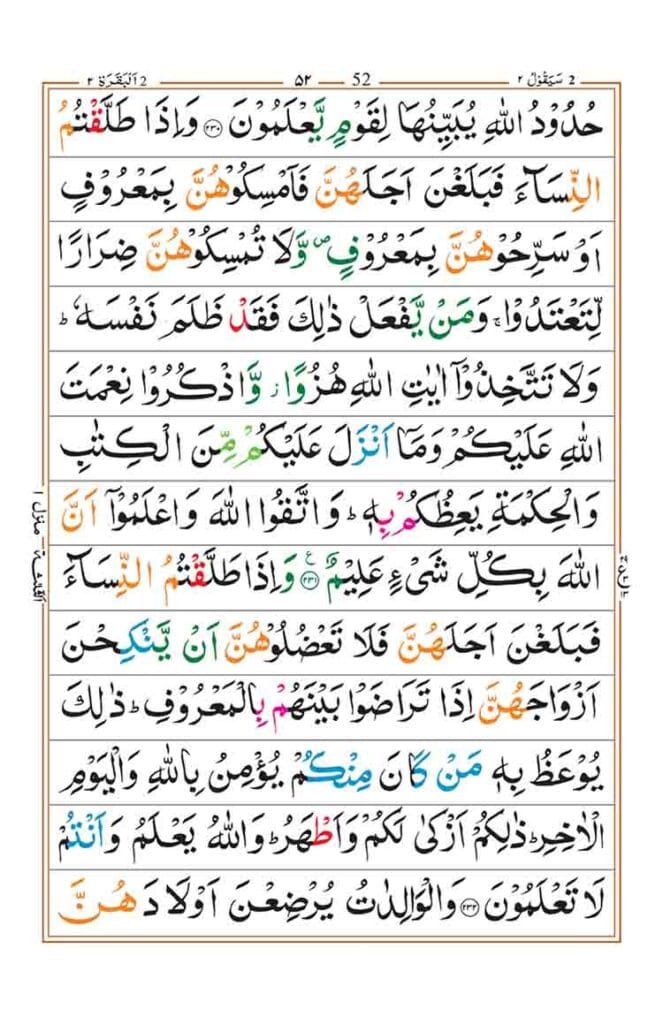 2 سَيَقُوْلُ ٢ — 52 — ٥٢ — 2 اَلْبَقَرَة ٢
حُدُوْدُ اللّٰهِ يُبَيِّنُهَا لِقَوْمٍ يَّعْلَمُوْنَ ﴿٢٣٠﴾ وَاِذَا طَلَّقْتُمُ
النِّسَآءَ فَبَلَغْنَ اَجَلَهُنَّ فَاَمْسِكُوْهُنَّ بِمَعْرُوْفٍ
اَوْ سَرِّحُوْهُنَّ بِمَعْرُوْفٍ ۪ وَّلَا تُمْسِكُوْهُنَّ ضِرَارًا
لِّتَعْتَدُوْا ۚ وَمَنْ يَّفْعَلْ ذٰلِكَ فَقَدْ ظَلَمَ نَفْسَهٗ ؕ
وَلَا تَتَّخِذُوْٓا اٰيٰتِ اللّٰهِ هُزُوًا ؗ وَّاذْكُرُوْا نِعْمَتَ
اللّٰهِ عَلَيْكُمْ وَمَآ اَنْزَلَ عَلَيْكُمْ مِّنَ الْكِتٰبِ
وَالْحِكْمَةِ يَعِظُكُمْ بِهٖ ؕ وَاتَّقُوا اللّٰهَ وَاعْلَمُوْٓا اَنَّ
اللّٰهَ بِكُلِّ شَىْءٍ عَلِيْمٌ ﴿٢٣١﴾ ع وَاِذَا طَلَّقْتُمُ النِّسَآءَ
فَبَلَغْنَ اَجَلَهُنَّ فَلَا تَعْضُلُوْهُنَّ اَنْ يَّنْكِحْنَ
اَزْوَاجَهُنَّ اِذَا تَرَاضَوْا بَيْنَهُمْ بِالْمَعْرُوْفِ ؕ ذٰلِكَ
يُوْعَظُ بِهٖ مَنْ كَانَ مِنْكُمْ يُؤْمِنُ بِاللّٰهِ وَالْيَوْمِ
الْاٰخِرِ ؕ ذٰلِكُمْ اَزْكٰى لَكُمْ وَاَطْهَرُ ؕ وَاللّٰهُ يَعْلَمُ وَاَنْتُمْ
لَا تَعْلَمُوْنَ ﴿٢٣٢﴾ وَالْوَالِدٰتُ يُرْضِعْنَ اَوْلَادَهُنَّ
منزل ١